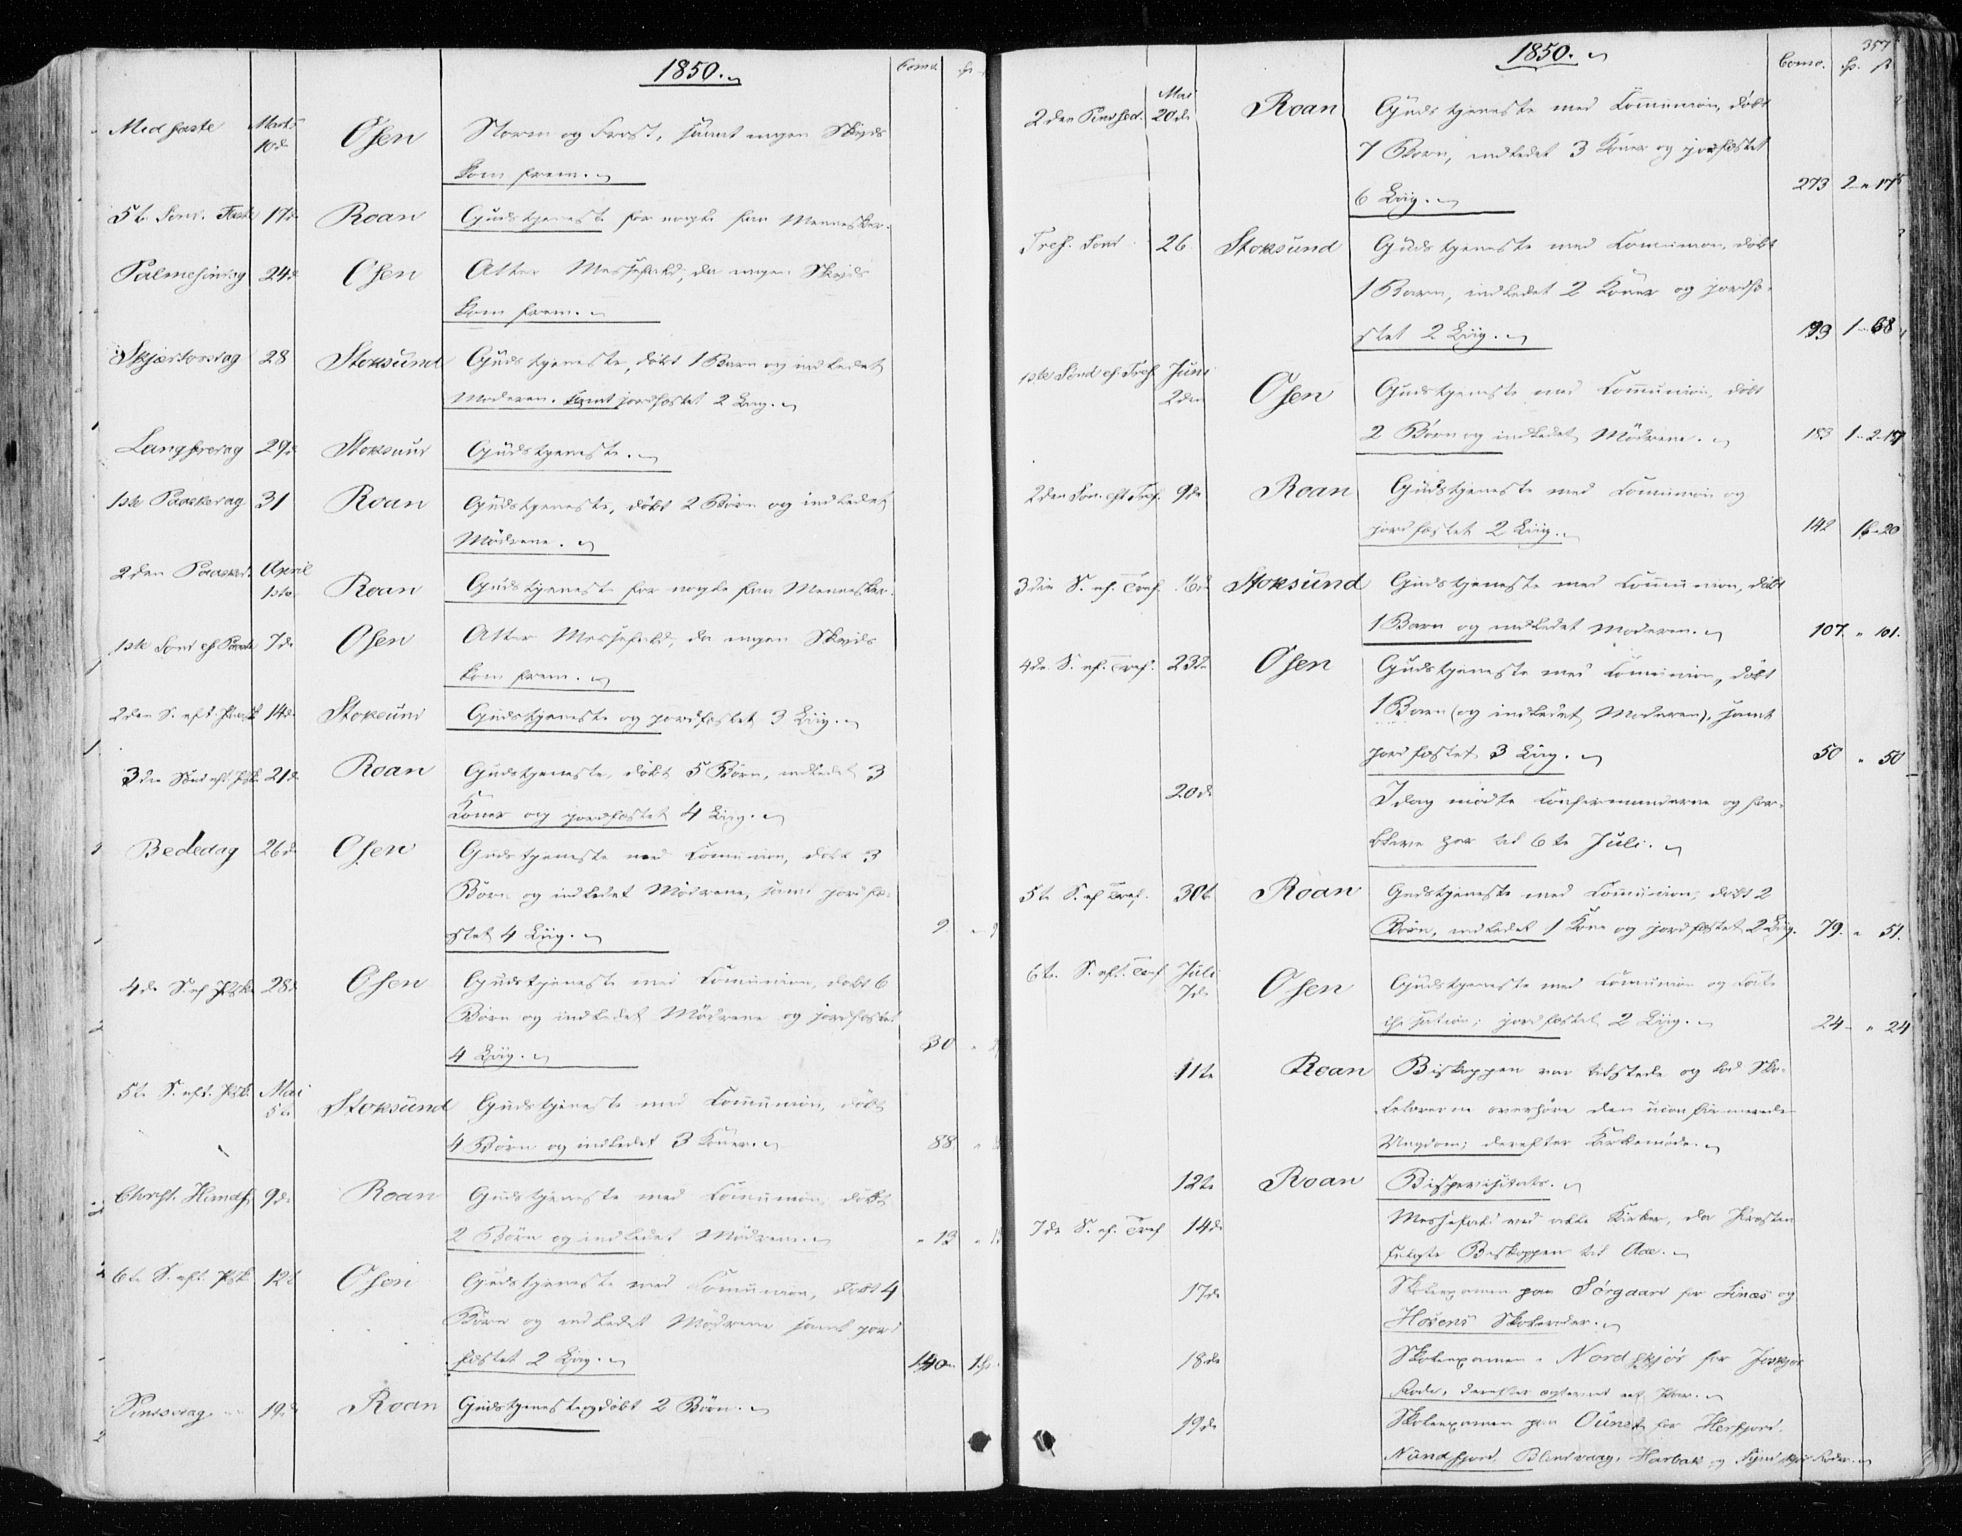 1850.
Comm.
Midfaste Marts 10de Osen Storm og Frost, samt ingen Skyds
kom frem.
5te Sønd. Faste 17de Roan Gudstjeneste for nogle faa Mennesker.
Palmesøndag 24de Osen Atter Messefald, da ingen Skyds
kom frem.
Skjærtorsdag 28 Stoksund Gudstjeneste, døbt 1 Barn og indledet
Moderen. Samt jordfæstet 2 Liig.
Langfredag 29de Stoksund Gudstjeneste.
1ste Paaskedag 31 Roan Gudstjeneste, døbt 2 Børn og indledet
Mødrene.
2den Paasked. April 1ste Roan Gudstjeneste for nogle faa Mennesker.
1ste Sønd ef Paaske 7de Osen Atter Messefald, da ingen Skyds
kom frem.
2den S. eft. Paask 14de Stoksund Gudstjeneste og jordfæstet 3 Liig.
3die Sønd eft. Psk. 21de Roan Gudstjeneste, døbt 5 Børn, indledet 3
Koner og jordfæstet 4 Liig.
Bededag 26de Osen Gudstjeneste med Communion, døbt 3
Børn og indledet Mødrene, samt jordfæ-
stet 4 Liig. 9
4de S. ef Psk. 28de Osen Gudstjeneste med Communion, døbt 6
Børn og indledet Mødrene og jordfæstet
4 Liig. 30
5te S. eft. Psk. Mai 5te Stoksund Gudstjeneste med Communion, døbt
4 Børn og indledet 3 Koner. 88
Christi Himmelf. 9de Roan Gudstjeneste med Communion, døbt
2 Børn og indledet Mødrene. 13
6te S. eft. Psk. 12te Osen Gudstjeneste med Communion, døbt 4
Børn og indledet Mødrene samt jord
fæstet 2 Liig. 140
Pinsedag 19de Roan Gudstjeneste og døbt 2 Børn.
357
1850.
Comm. Sp. ß
2den Pintsed. Mai 20de Roan Gudstjeneste med Communion, døbt
7 Børn, indledet 3 Koner og jordfæstet
6 Liig. 273 2 - 17
Tref. Sønd. 26 Stoksund Gudstjeneste med Communion, døbt
1 Barn, indledet 2 Koner og jordfæ-
stet 2 Liig. 199 1 - 68
1ste Sønd ef Tref. Juni 2den Osen Gudstjeneste med Communion, døbt
2 Børn og indledet Mødrene. 183
2den Søn. eft Tref. 9de Roan Gudstjeneste med Communion og
jordfæstet 2 Liig. 142
3die S. ef. Tref. 16de Stoksund Gudstjeneste med Communion, døbt
1 Barn og indledet Moderen. 107. " 101.
4de S. ef. Tref. 23de Osen Gudstjeneste med Communion, døbt
1 Barn (og indledet Moderen), samt
jordfæstet 3 Liig. 50 " 50
20de Idag mødte Confirmanderne og for-
bleve her til 6te Juli.
5te S. ef Tref. 30te Roan Gudstjeneste med Communion, døbt 2
Børn, indledet 1 Kone og jordfæstet 2 Liig. 79. " 51.
6te S. eft. Tref Juli 7de Osen Gudstjeneste med Communion og Cate
chisation; jordfæstet 2 Liig. 24 - " 24
11te Roan Biskoppen var tilstede og lod Sko-
lelærerne overhøre den uconfirmerede
Ungdom; derefter Kirkemøde.
12te Roan Bispevisitats.
7de S. ef. Tref 14de Messefald ved alle Kirker, da Præsten
fulgte Biskoppen til Aae.
17de Skoleexamen paa Sørgaard for Sinæs og
Hofens Skoleroder.
18de Skoleexamen i Nordskjør for
Rode, derefter
19de Skoleexamen paa for Herfjord.
Nundfjord Harbak og Roder.